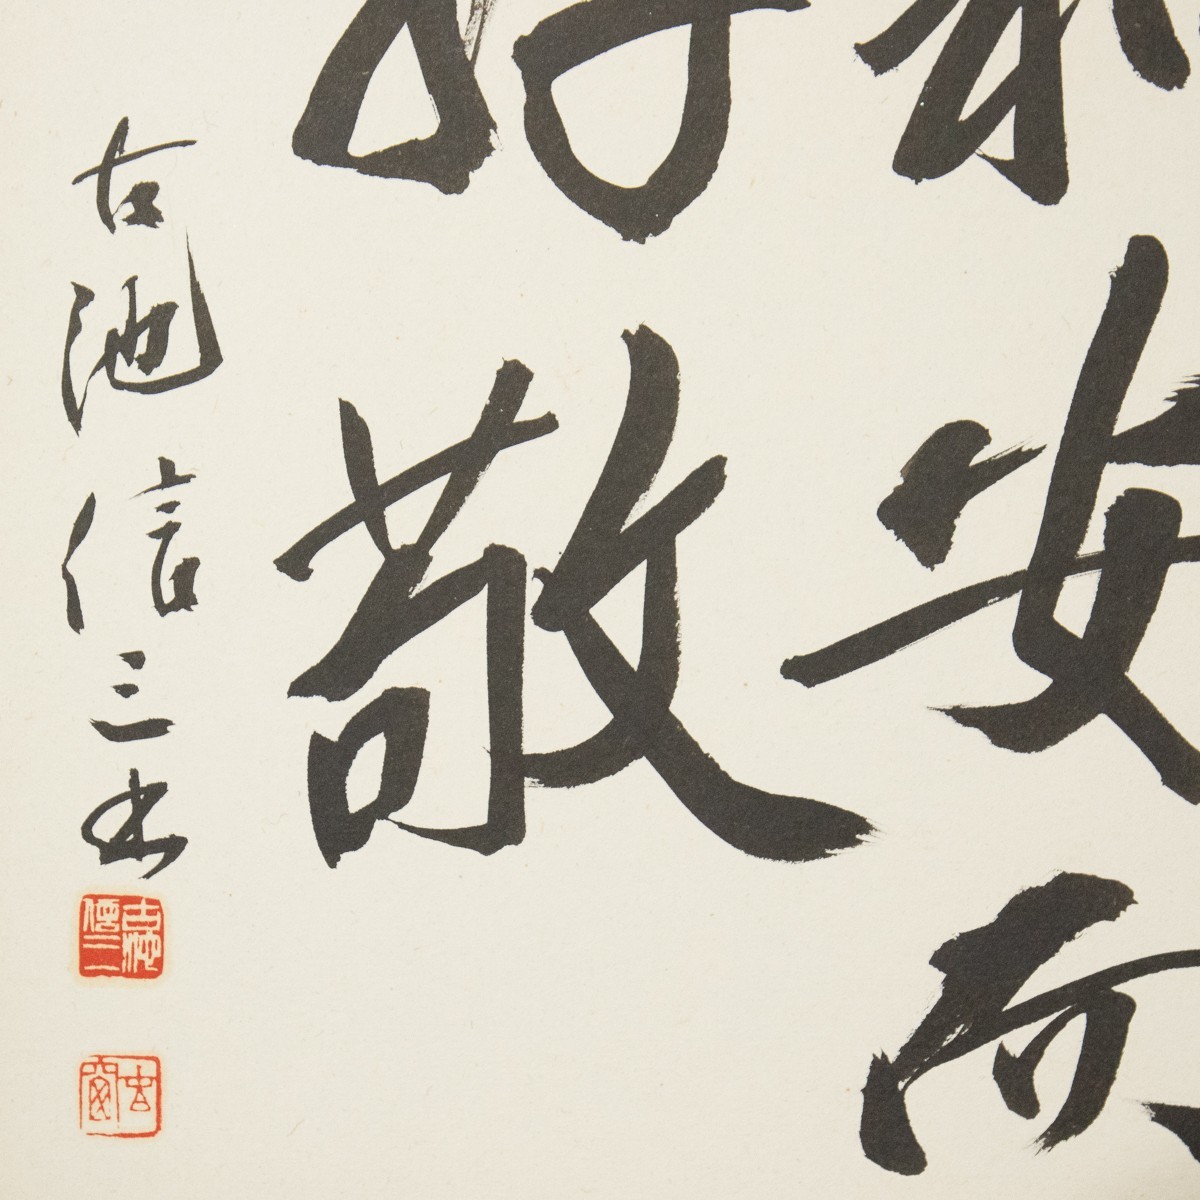 安而
好敬
古池信三書
古池信三